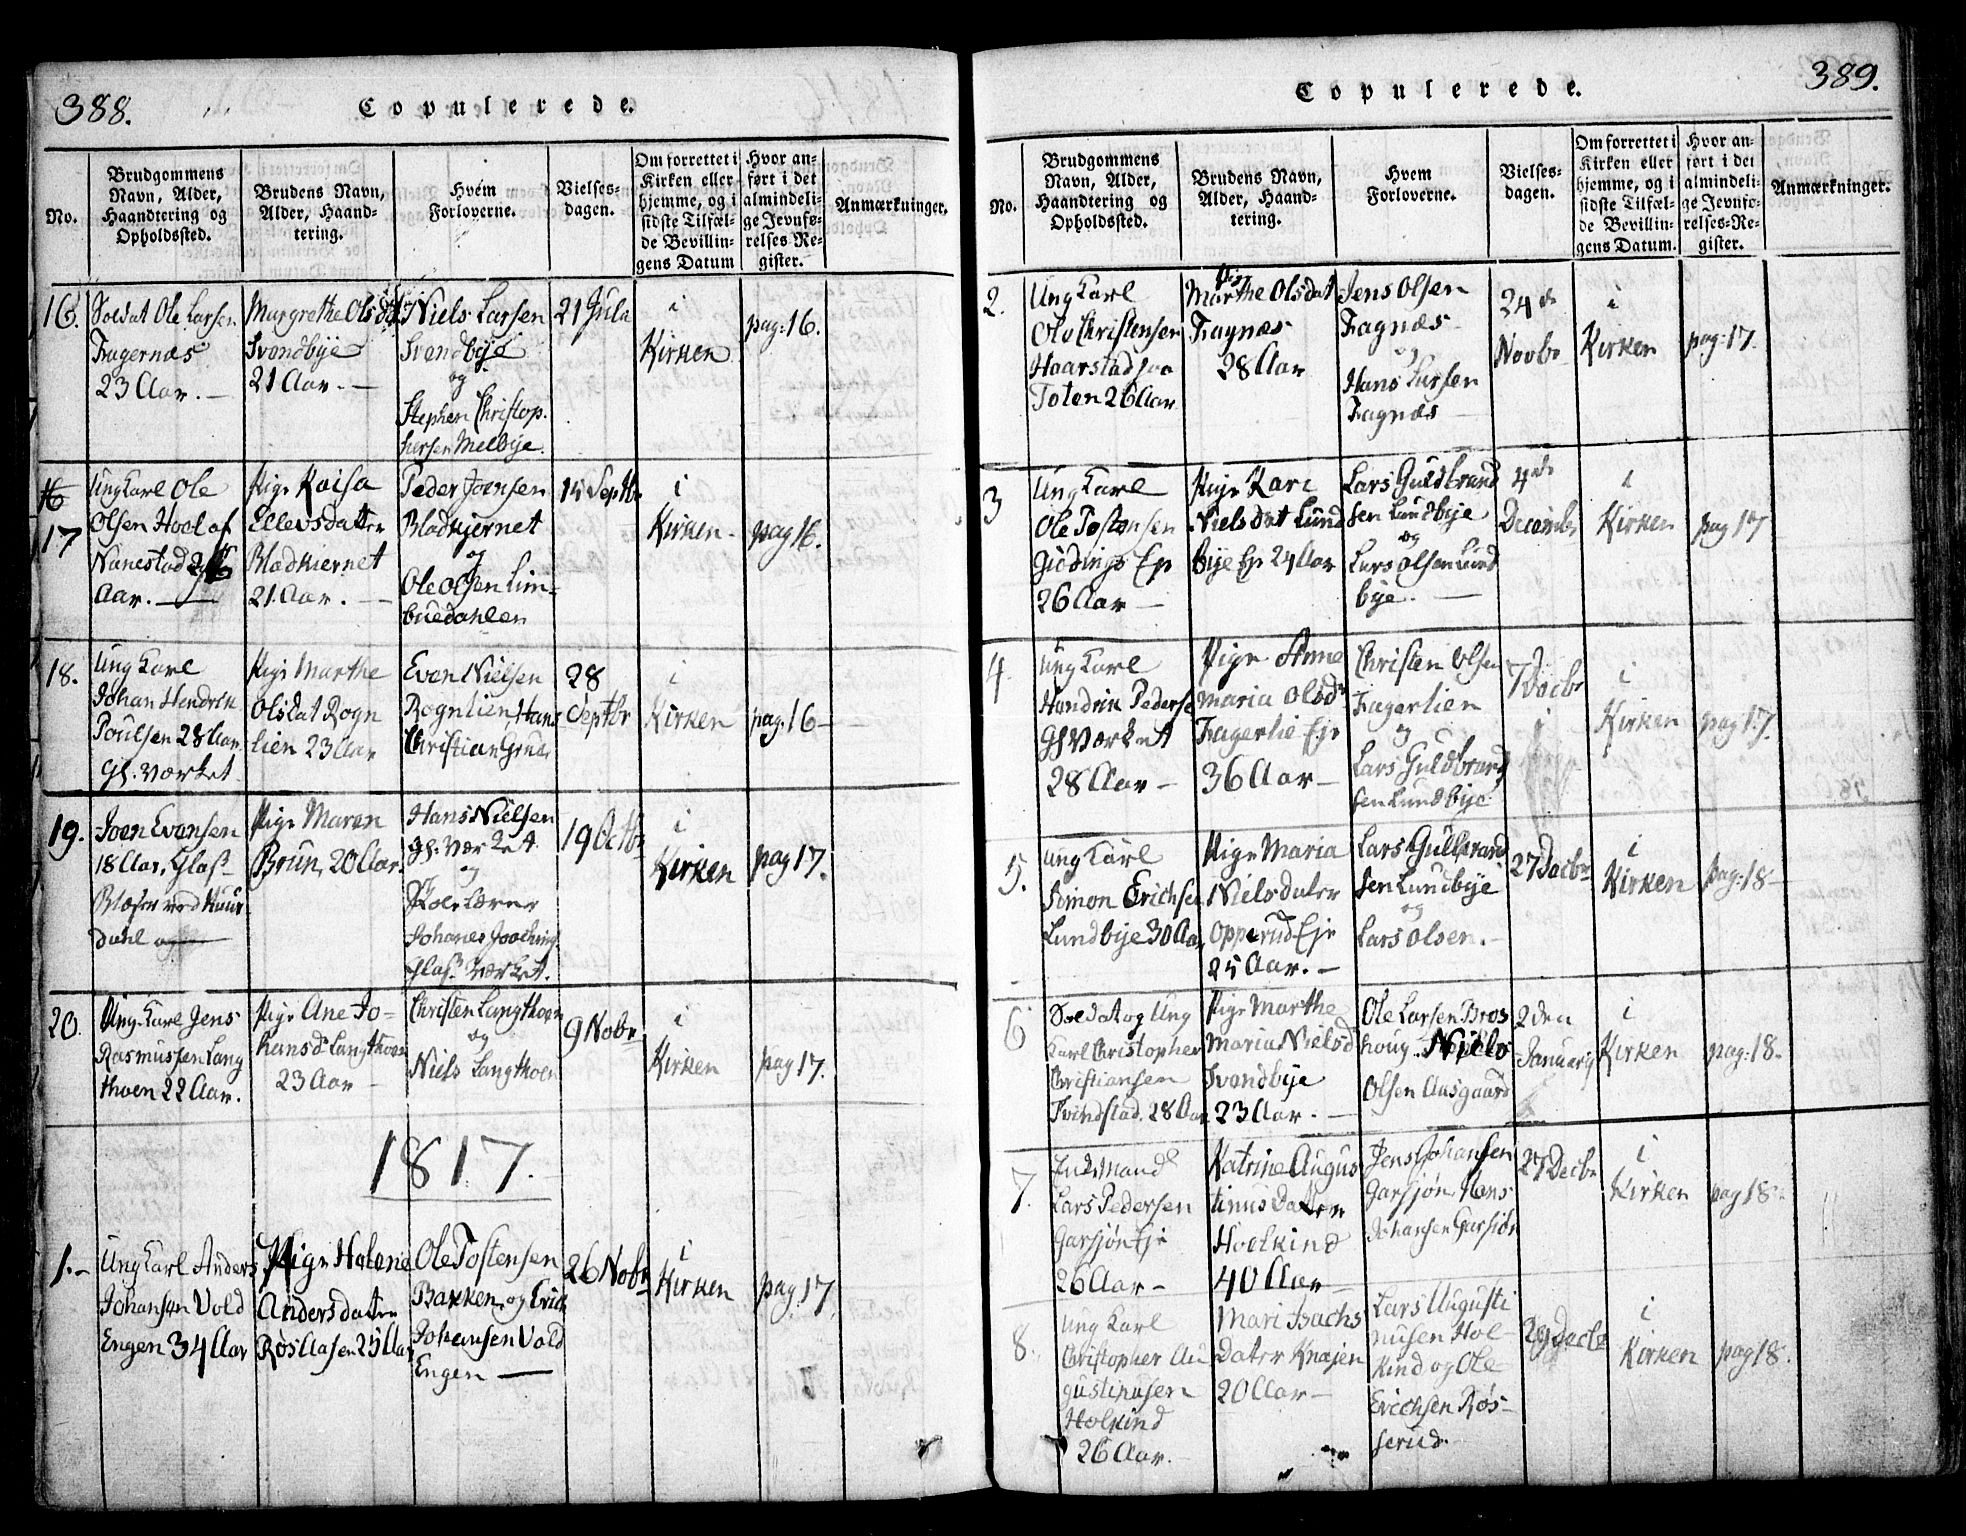 388.
Copulerede.
No.
Brudgommens
Navn, Alder,
Haandtering og
Opholdssted.
Brudens Navn,
Alder, Haand-
tering.
Hvem
Forloverne.
Vielses-
dagen.
Om forrettet i
Kirken eller
hjemme, og i
sidste Tilfæl-
de Bevillin-
gens Datum
Hvor an-
ført i det
almindeli-
ge Jevnfø-
relses-Re-
gister.
Anmærkninger.
16.
Soldat Ole Larsen
Fagernæs
23 Aar. —
Margrethe Olsdat
Svendbye
21 Aar. —
Niels Larsen
Svendbye
og
Stephen Christop-
hersen Melbye.
21 Jula
i
Kirken
pag: 16.
17
Ung Karl Ole
Olsen Hool af
Nanestad
Aar. —
Pige Kaisa
Ellevsdatter
Bladkiernet
21 Aar. —
Peder Joensen
Bladkjernet
og
Ole Olsen Lim-
buedahlen
15 Septbr
i
Kirken
pag 16.
18.
Ung Karl
Johan Hendrik
Poulsen 28 Aar
Gl. Værket
Pige Marthe
Olsdat Rogn
lien 23 Aar
Even Nielsen
Rognlien, Hans
Christian Grue
28
Septbr
i
Kirken
pag: 16 —
19.
Joen Evensen
18 Aar, Glas
Blæser ved Huur
dahl
Pige Maren
Brun, 20 Aar.
Hans Nielsen
Gl. Værket
og
Skolelærer
Johanes Joechims
Glas Værket.
19 Octbr
i
Kirken
pag 17.
20.
Ung Karl Jens
Rasmussen Lang
thoen 22 Aar.
Pige Ane Jo-
hansd Langthoen
23 Aar —
Christen Langthoen
og
Niels Langthoen
9 Nobr
i
Kirken
pag 17.
1817.
1. —
Ung Karl Anders
Johansen Vold
Engen 34 Aar
Pige Helene
Andersdatter
Røs Aasen 25 Aar
Ole Tostensen
Bakken og Erich
Johansen Vold
Engen —
26 Nobr
i
Kirken
pag: 17
389.
Copulerede.
No.
Brudgommens
Navn, Alder,
Haandtering og
Opholdssted.
Brudens Navn,
Alder, Haand-
tering.
Hvem
Forloverne.
Vielses-
dagen.
Om forrettet i
Kirken eller
hjemme, og i
sidste Tilfæl-
de Bevillin-
gens Datum.
Hvor an-
ført i det
almindeli-
ge Jevnfø-
relses-Re-
gister.
Anmærkninger.
2.
Ung Karl
Ole Christensen
Haarstad paa
Toten 26 Aar
Pige
Marthe Olsdat
Fagnæs
28 Aar
Jens Olsen
Fagnæs
og
Hans Larsen
Fagnæs
24 de
Novbr
i
Kirken
pag: 17.
3
Ung Karl
Ole Tostensen
Gidings Ep
26 Aar —
Pige Kari
Nielsdat Lund
bye Ep 24 Aar
Lars Guldbrand
sen Lundbye
og
Lars Olsen Lund
bye. —
4 de
Decembr
i
Kirken
pag 17
4.
Ung Karl
Hendrik Pederse
Gl Værket
28 Aar —
Pige Anne
Maria Olsd
Fagerlie Eje
36 Aar —
Christen Olsen
Fagerlien
og
Lars Guldbrand
sen Lundbye
7 Decbr
i
Kirken
pag 17.
5.
Ung Karl
Simon Erichsen
Lundbye 30 Aar
Pige Maria
Nielsdater
Opperud Eje
25 Aar. —
Lars Gulbrand
sen Lundbye
og
Lars Olsen. —
27 Decbr
i
Kirken
pag: 18 —
6
Soldat og Ung
Karl Christopher
Christiansen
Tvindstad. 28 Aar
Pige Marthe
Maria Nielsd
Svendbye
23 Aar. —
Ole Larsen Bros
houg. Niels
Olsen Aasgaard
2 den
Januarij
i
Kirken
pag: 18.
7.
Enkemand
Lars Pedersen
Garsjøn Eje
26 Aar —
Katrine Augus
tinus Datter
Hoelkind
40 Aar —
Jens Johansen
Garsjøn, Hans
Johansen Garsiøn
27 Decbr
i
Kirken
pag 18.
8.
Ung Karl
Christopher Au
gustinusen
Holkind
26 Aar.
Mari Isachs
Dater Knajen
20 Aar —
Lars Augusti
nusen Hol-
kind og Ole
Erichsen Røs-
serud.
29 Decbr
i
Kirken
pag 18.